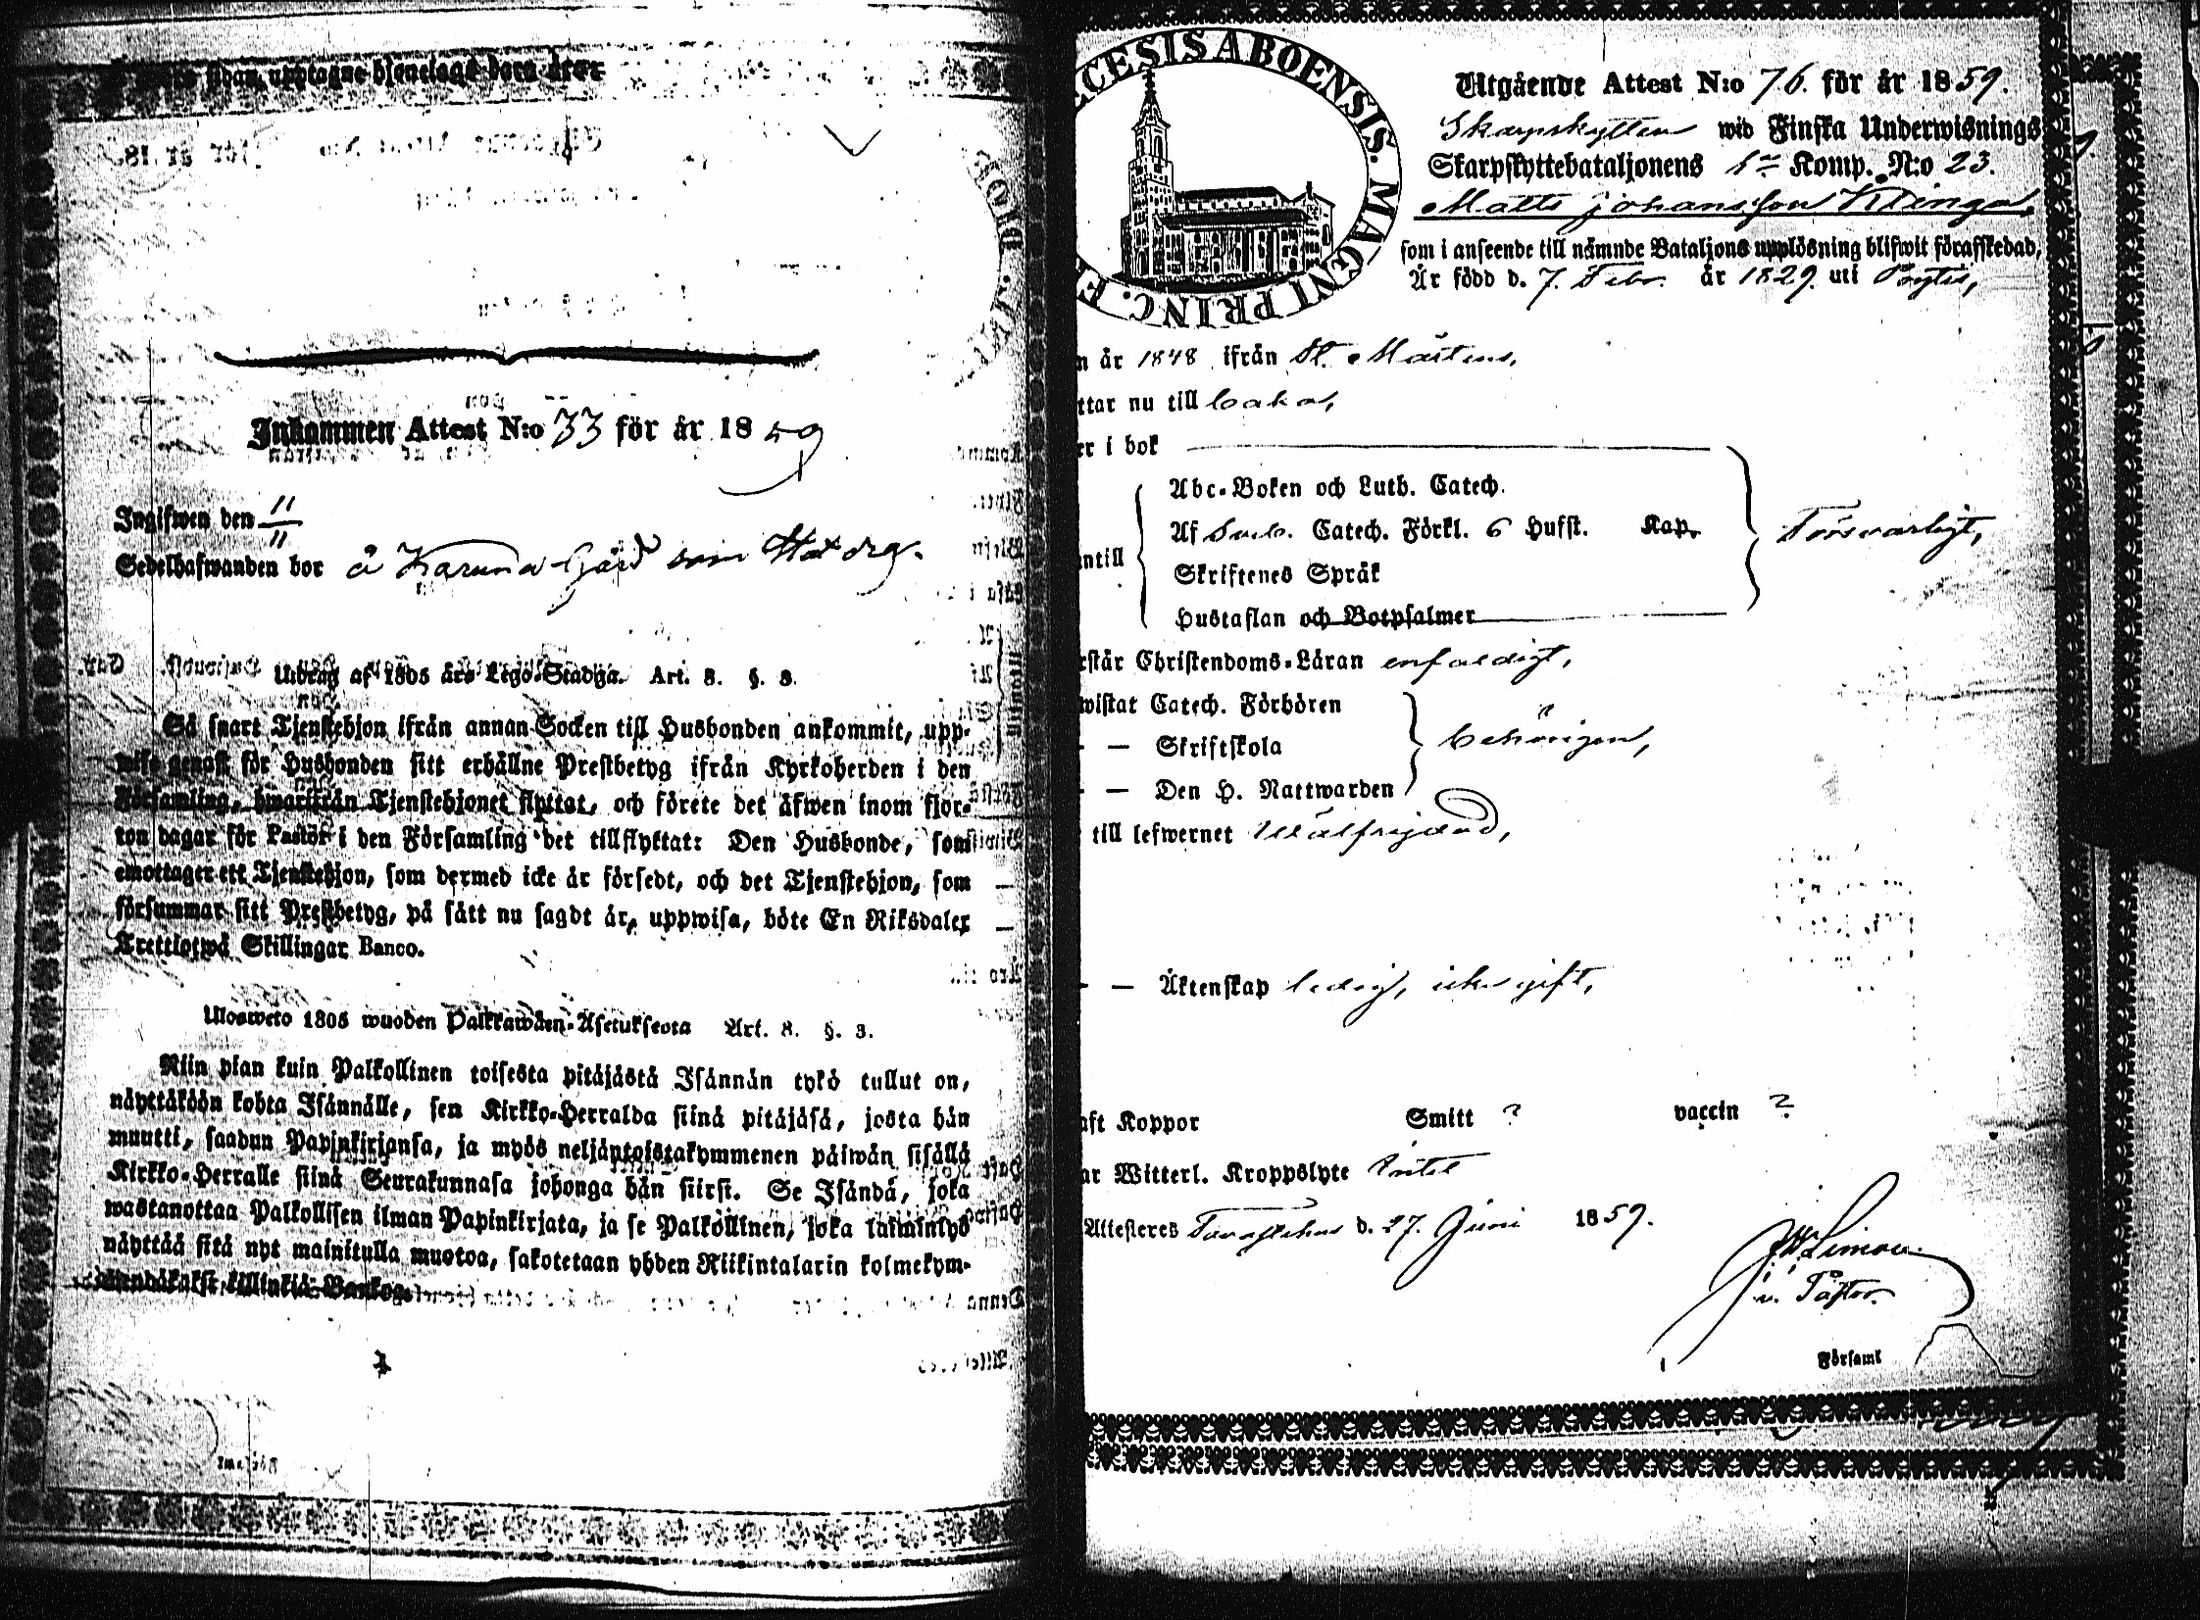 sidan, upptagne
Inkommen Attest N:o 33 för år 1859
Ingifwen den 11/11
Sedelhafwanden bor å Karuna Gård som Statdrg.
Utdrag af 1805 års Lego-Stadga. Art. 8. §. 3.
Så snart Tjenstehjon ifrån annan Socken till Husbonden ankommit, upp-
wise genast för Husbonden sitt erhållne Prestbetyg ifrån Kyrkoherden i den
Församling, hwarifrån Tjenstehjonet flyttat, och förete det äfwen inom fjor-
ton dagar för Pastor i den Församling det tillflyktat: Den Husbonde, som
emottager ett Tjenstehjon, som dermed icke är försedt, och det Tjenstehjon, som
försummar sitt Prestbetyg, på sätt nu sagdt är, uppwisa, böte En Riksdaler
Trettiotwå Skillingar Banco.
Ulosweto 1805 wuoden Palkkawäen-Asetuksesta Art. 8. §. 3.
Niin pian kuin Palkollinen toisesta pitäjästä Isännän tykö tullut on,
näyttäköön kohta Isännälle, sen Kirkko-Herralda siinä pitäjäsä, josta hän
muutti, saadun Papinkirjansa, ja myös neljäntoistakymmenen päiwän sisällä
Kirkko-Herralle siinä Seurakunnasa johonga hän siirsi. Se Isändä, joka
wastanottaa Palkollisen ilman Papinkirjata, ja se Palkollinen, joka laiminlyö
näyttää sitä nyt mainitulla muotoa, sakotetaan yhden Riikintalarin kolmekym-
mendäkaksi killinkiä Bankog.
ECESIS ABOENSIS. MAGNI PRINC. F
Utgående Attest N:o 76. för år 1859.
Skarpskytten wid Finska Underwisnings
Skarpskyttebataljonens 1:a Komp. N:o 23.
Matts Johansson Klinga,
som i anseende till nämnde Bataljons upplösning blifwit förafskedad,
Är född d. 7. Febr. år 1829. uti Pöytis,
n år 1848 ifrån St. Mårtens,
ttar nu till
er i bok
Abc-Boken och Luth. Catech.
Af Sveb. Catech. Förkl. 6 Hufst. Kap.
ntill
Försvarligt,
Skriftenes Språk
Hustaflan och Botpsalmer
rstår Christendoms-Läran enfaldigt,
wistat Catech. Förhören
- — Skriftskola
behörigen,
- — Den H. Nattwarden
till lefwernet Wälfrejdad,
- — Äktenskap ledig, icke gift,
aft Koppor Smitt ? vaccin ?
ar Witterl. Kroppslyte Intet
Attesteres Tavastehus d. 27. Juni 1859.
v. Pastor.
Församl